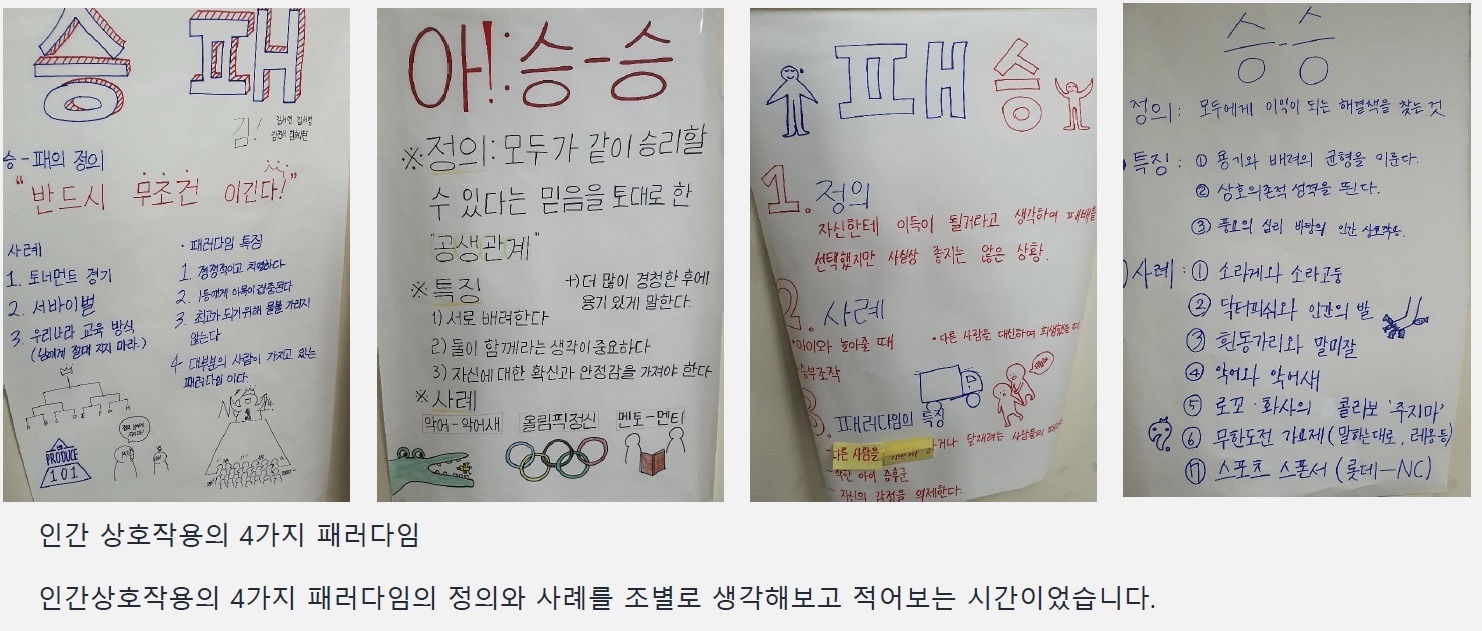 승 패
김!
승-패의 정의
"반드시 무조건 이긴다!"
사례
1. 토너먼트 경기
2. 서바이벌
3. 우리나라 교육 방식
(남에게 절대 지지 마라.)
· 패러다임 특징
1. 경쟁적이고 치열하다
2. 1등에게 이목이 집중된다
3. 최고가 되기 위해 물불 가리지
않는다
4. 대부분의 사람이 가지고 있는
패러다임 이다.
PRODUCE
101
아!:승-승
※정의:모두가 같이 승리할
수 있다는 믿음을 토대로 한
"공생관계"
※특징
+)더 많이 경청한 후에
용기 있게 말한다.
1) 서로 배려한다
2) 둘이 함께라는 생각이 중요하다
3) 자신에 대한 확신과 안정감을 가져야 한다
※사례
악어-악어새 올림픽정신 멘토-멘티
패 승
1. 정의
자신한테 이득이 될거라고 생각하여 패배를
선택했지만 사실상 좋지는 않은 상황.
2. 사례
·아이와 놀아줄 때
·다른 사람을 대신하여 희생했을 때
·승부조작
3. 패러다임의 특징
다른 사람을 거나 달래려는 사람들의
착한 아이 증후군
자신의 감정을 억제한다.
승-승
정의: 모두에게 이익이 되는 해결책을 찾는 것
특징: ① 용기와 배려의 균형을 이룬다.
② 상호의존적 성격을 띤다.
③ 풍요의 심리 바탕의 인간 상호작용.
사례: ① 소라게와 소라고둥
② 닥터피쉬와 인간의 발
③ 흰동가리와 말미잘
④ 악어와 악어새
⑤ 로꼬·화사의 콜라보 '주지마'
⑥ 무한도전 가요제(말하는대로, 레옹 등)
⑦ 스포츠 스폰서 (롯데-NC)
인간 상호작용의 4가지 패러다임
인간상호작용의 4가지 패러다임의 정의와 사례를 조별로 생각해보고 적어보는 시간이었습니다.